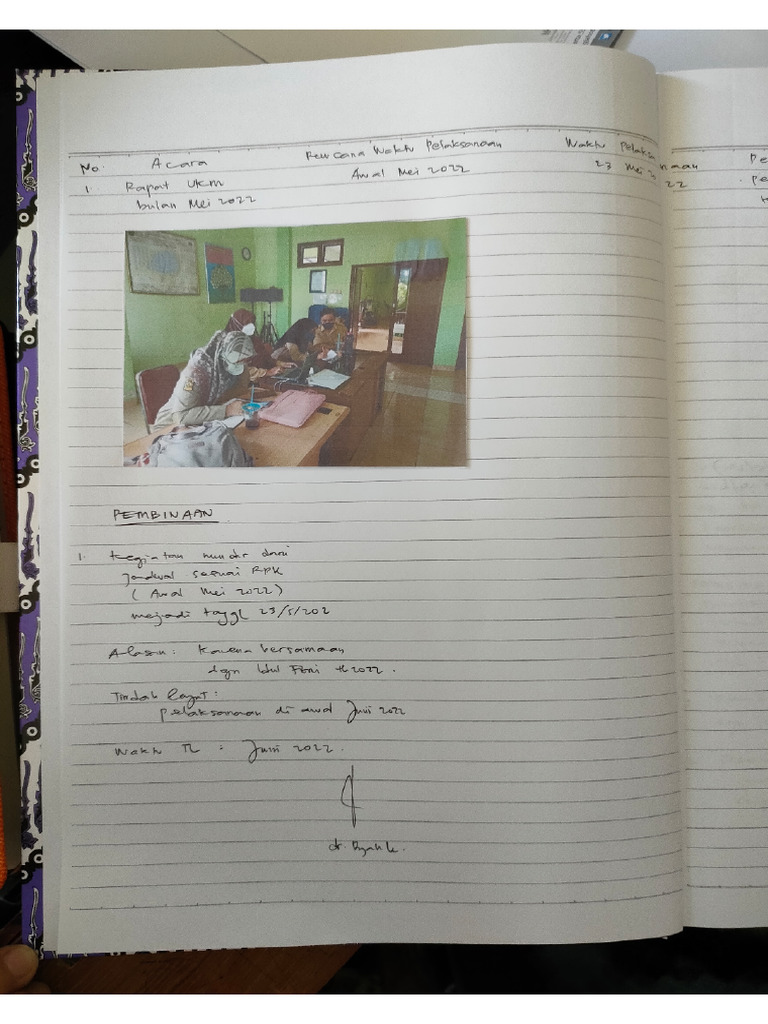 No. Acara Rencana Waktu Pelaksanaan Waktu Pelaksanaan Pe
1. Rapat UKM Awal Mei 2022 23 Mei 2022 pe
bulan Mei 2022
PEMBINAAN
1. Kegiatan mundur dari
jadwal sesuai RPK
( Awal Mei 2022)
menjadi tanggl 23/5/202
Alasan: Karena bersamaan
dgn Idul Fitri th 2022.
Tindak lanjut:
pelaksanaan di awal Juni 2022
Waktu TL : Juni 2022.
dr.